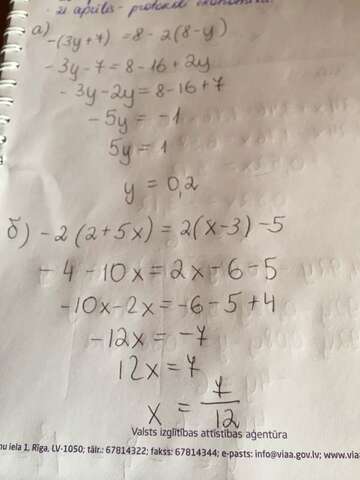 21 aprīlis - protokol
а)
-(3y+7) = 8-2(8-y)
-3y-7 = 8-16+2y
-3y-2y = 8-16+7
-5y = -1
5y = 1
y = 0,2
б) -2(2+5x) = 2(x-3)-5
-4-10x = 2x-6-5
-10x-2x = -6-5+4
-12x = -7
12x = 7
x = 7/12
Valsts izglītības attīstības aģentūra
ņu iela 1, Rīga, LV-1050; tālr.: 67814322; fakss: 67814344; e-pasts: info@viaa.gov.lv; www.viaa